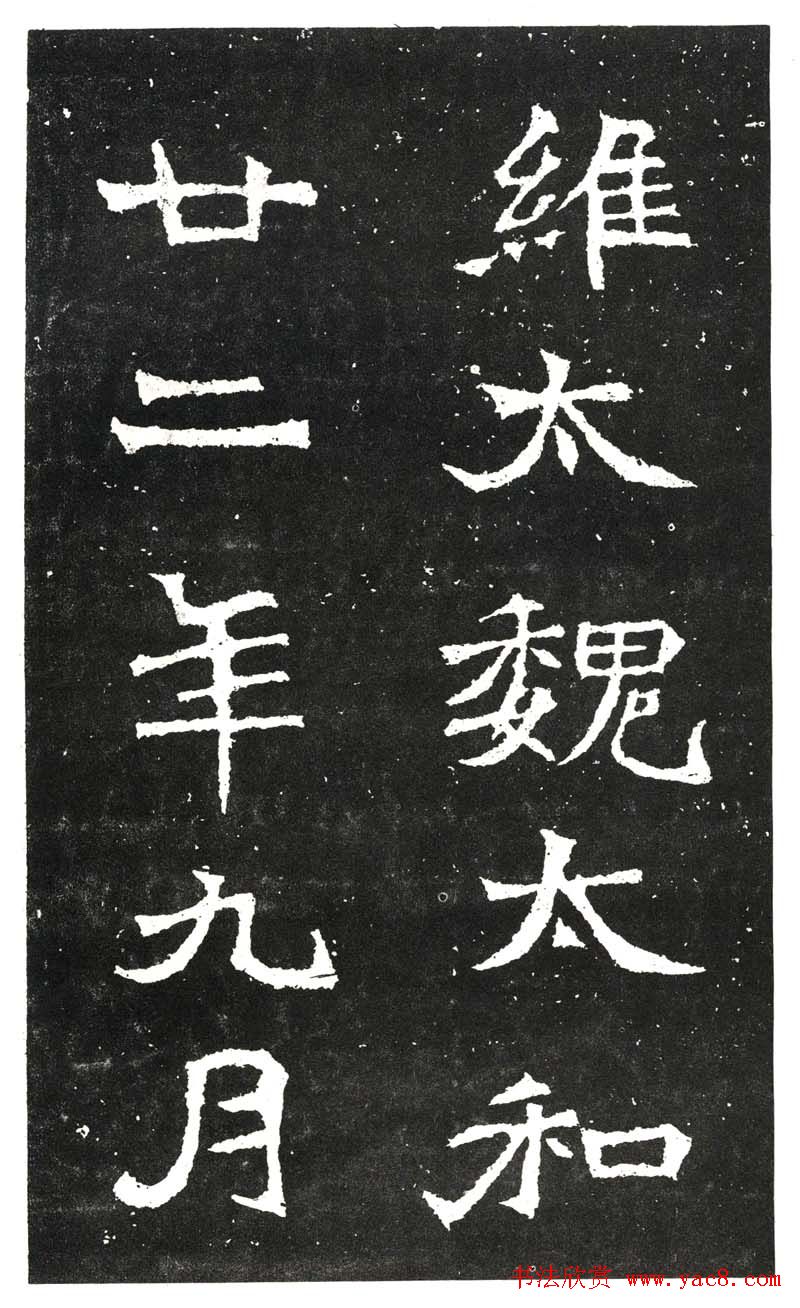 維太魏太和
廿二年九月
书法欣赏 www.yac8.com